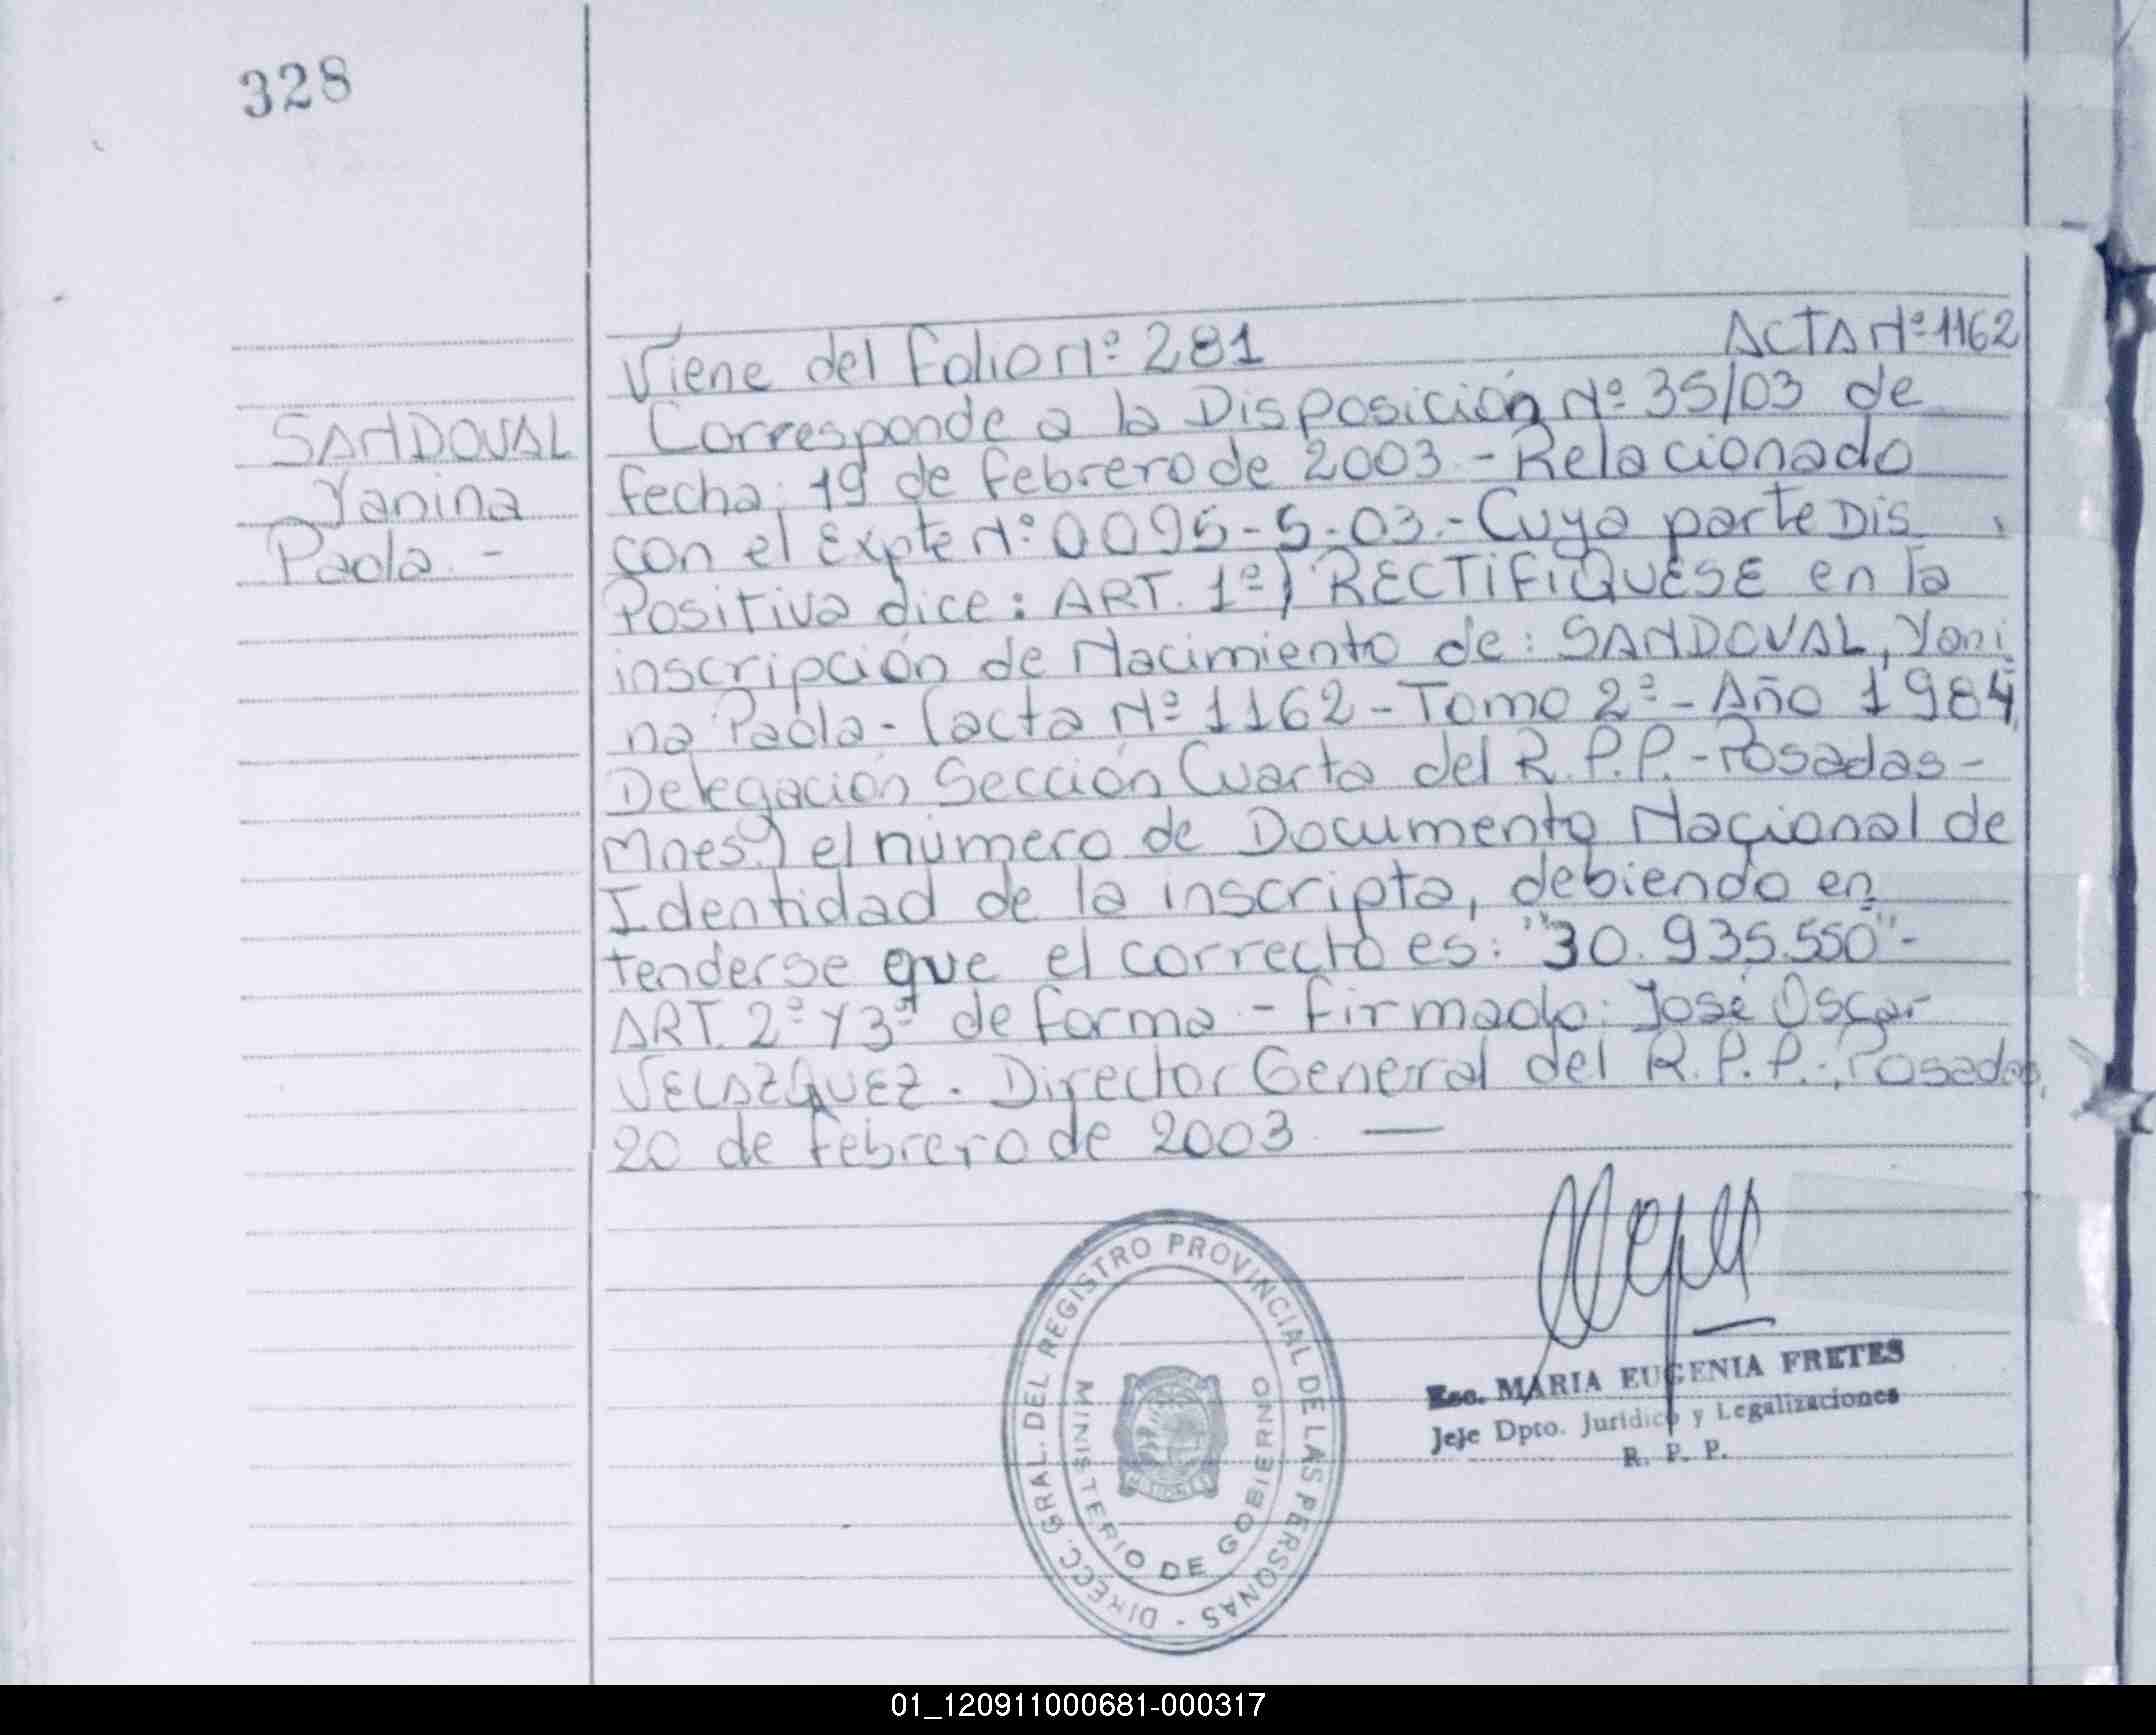 328
Viene del Folio Nº 281 ACTA Nº 1162
SANDOVAL
Yanina
Paola. -
Corresponde a la Disposición Nº 35/03 de
fecha: 19 de febrero de 2003 - Relacionado
con el Expte Nº 0095-S-03.- Cuya parte Dis
positiva dice: ART. 1º) RECTIFIQUESE en la
inscripción de Nacimiento de: SANDOVAL, Yani
na Paola - (acta Nº 1162 - Tomo 2º - Año 1984,
Delegación Sección Cuarta del R.P.P. - Posadas -
Mnes.) el número de Documento Nacional de
Identidad de la inscripta, debiendo en
tenderse que el correcto es: "30.935.550" -
ART. 2º Y 3º de forma - Firmado: José Oscar
VELAZQUEZ. Director General del R.P.P.-, Posadas,
20 de febrero de 2003. —
DIRECC. GRAL. DEL REGISTRO PROVINCIAL DE LAS PERSONAS -
MINISTERIO DE GOBIERNO
MISIONES
Esc. MARIA EUGENIA FRETES
Jefe Dpto. Jurídico y Legalizaciones
R. P. P.
01_120911000681-000317